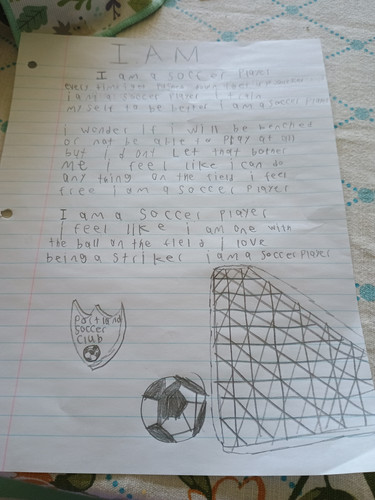 I AM
I am a soccer player
every time
i am a soccer player i train
my self to be better i am a soccer player
I wonder if i will be benched
or not be able to play at all
but I dont let that bother
me I feel like i can do
any thing on the field i feel
free i am a soccer player
I am a soccer player
I feel like i am one with
the ball on the field i love
being a striker i am a soccer player
Portland
Soccer
Club